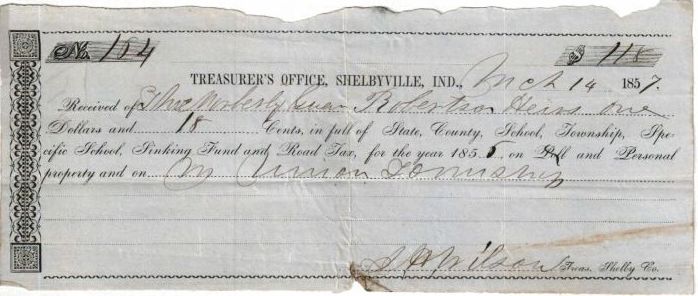 No. 184 $ 1 18
TREASURER'S OFFICE, SHELBYVILLE, IND., Mch 14 1857.
Received of Robertson Heirs one
Dollars and 18 Cents, in full of State, County, School, Township, Spe-
cific School, Sinking Fund and Road Tax, for the year 1856 on Poll and Personal
property and on in Union Township
Wilson Treas. Shelby Co.